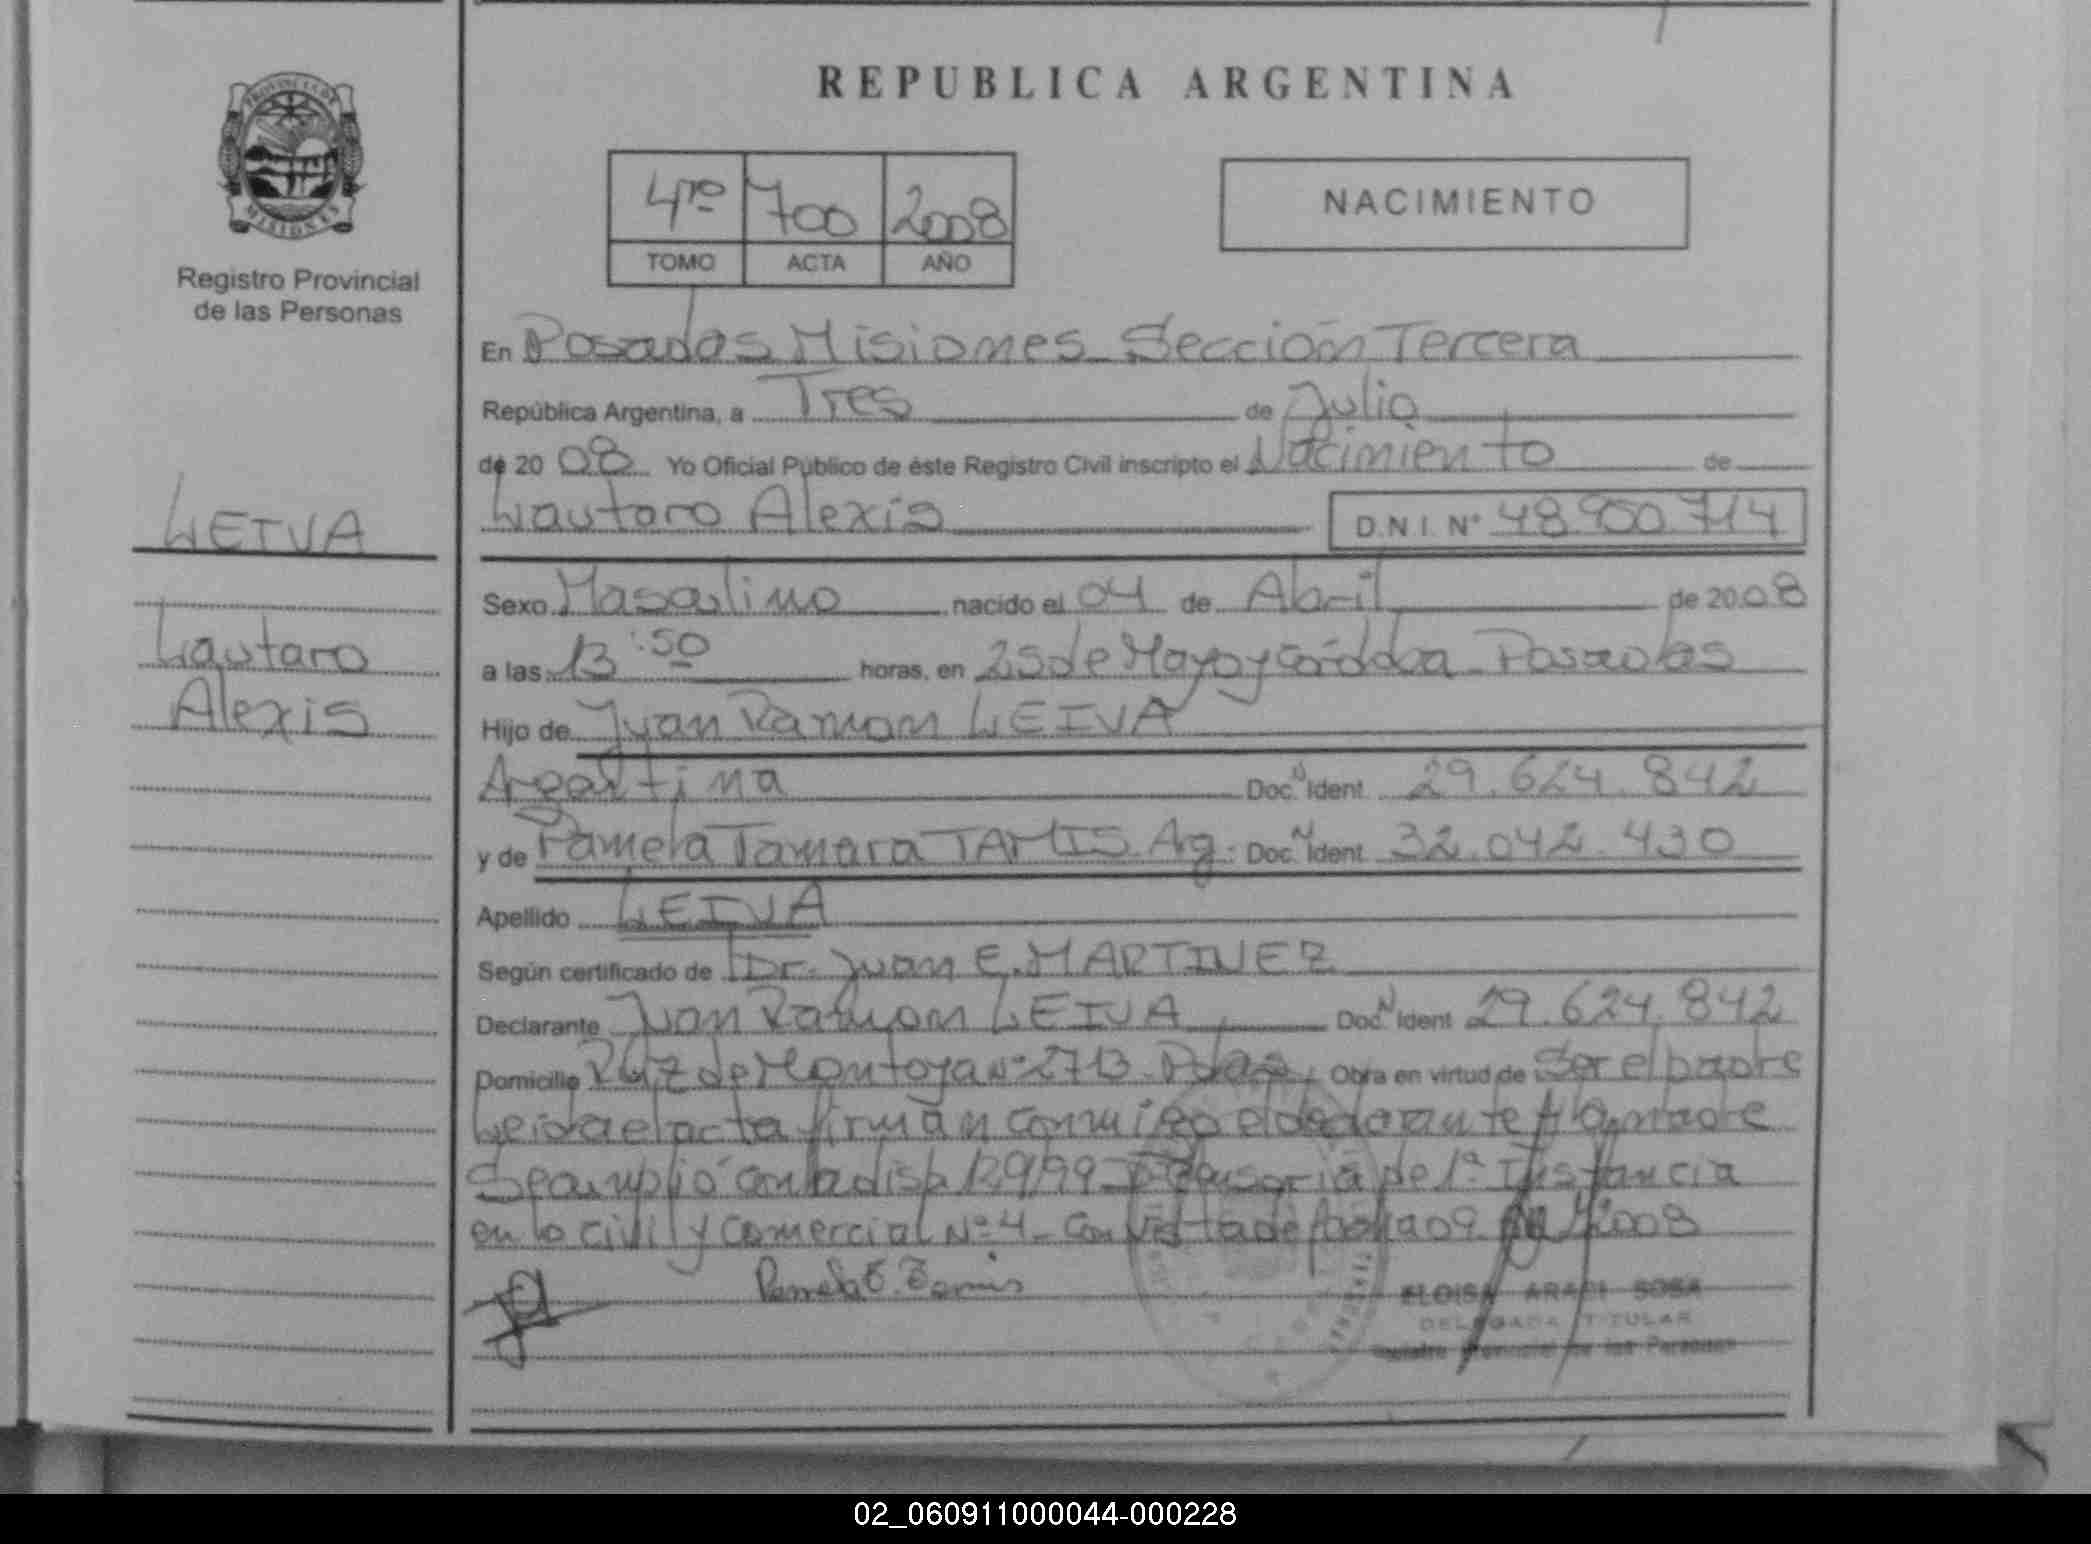 REPUBLICA ARGENTINA
PROVINCIA DE
MISIONES
Registro Provincial
de las Personas
4to 700 2008
TOMO ACTA AÑO
NACIMIENTO
LEIVA
Lautaro
Alexis
En Posadas Misiones Sección Tercera
República Argentina, a Tres de Julio
de 20 08 Yo Oficial Público de éste Registro Civil inscripto el Nacimiento de
Lautaro Alexis D.N.I. Nº 48.900.714
Sexo Masculino nacido el 04 de Abril de 20 08
a las 13:50 horas, en 25 de Mayo y Córdoba Posadas
Hijo de Juan Ramon LEIVA
Argentina Doc. N Ident 29.624.842
y de Pamela Tamara TAMIS Arg. Doc. N Ident 32.042.430
Apellido LEIVA
Según certificado de Dr. Juan E. MARTINEZ
Declarante Juan Ramon LEIVA Doc. N Ident 29.624.842
Domicilio Ruiz de Montoya Nº 2713 Pdas Obra en virtud de Ser el padre
Leida el acta firman conmigo el declarante y la madre
Se cumplió con la disp 129/99 Defensoria de 1ª Instancia
en lo civil y Comercial Nº 4 - Con vista de fecha 09 2008
Pamela T. Tamis
ELOISA SOSA
DELEGADA TITULAR
Registro Provincial de las Personas
02_060911000044-000228